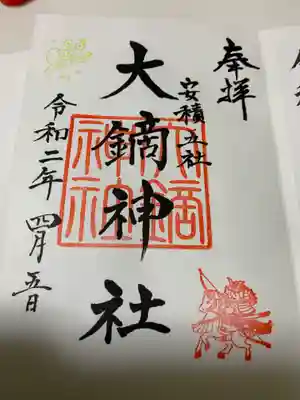 奉拝
安積五社
大鏑神社
令和二年 四月五日